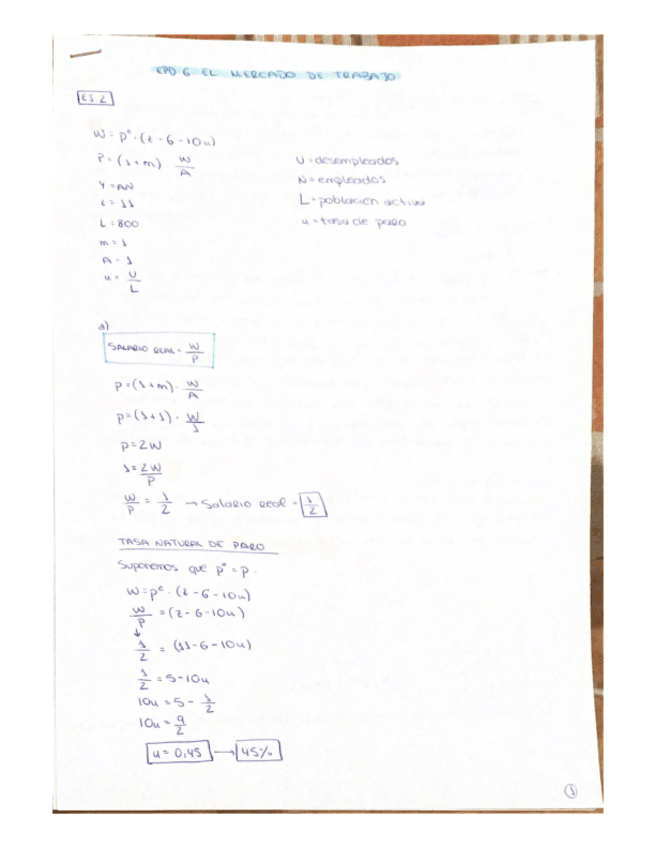 EPD 6 EL MERCADO DE TRABAJO
EJ.2
W = pᵉ · (z - 6 - 10u)
P = (1+m) · W/A
Y = AN
z = 11
L = 800
m = 1
A = 1
u = U/L
U = desempleados
N = empleados
L = población activa
u = tasa de paro
a)
SALARIO REAL = W/P
P = (1+m) · W/A
P = (1+1) · W/1
P = 2W
1 = 2W/P
W/P = 1/2 → Salario real = 1/2
TASA NATURAL DE PARO
Suponemos que pᵉ = p.
W = pᵉ · (z - 6 - 10u)
W/P = (z - 6 - 10u)
↓
1/2 = (11 - 6 - 10u)
1/2 = 5 - 10u
10u = 5 - 1/2
10u = 9/2
u = 0,45 → 45%
1